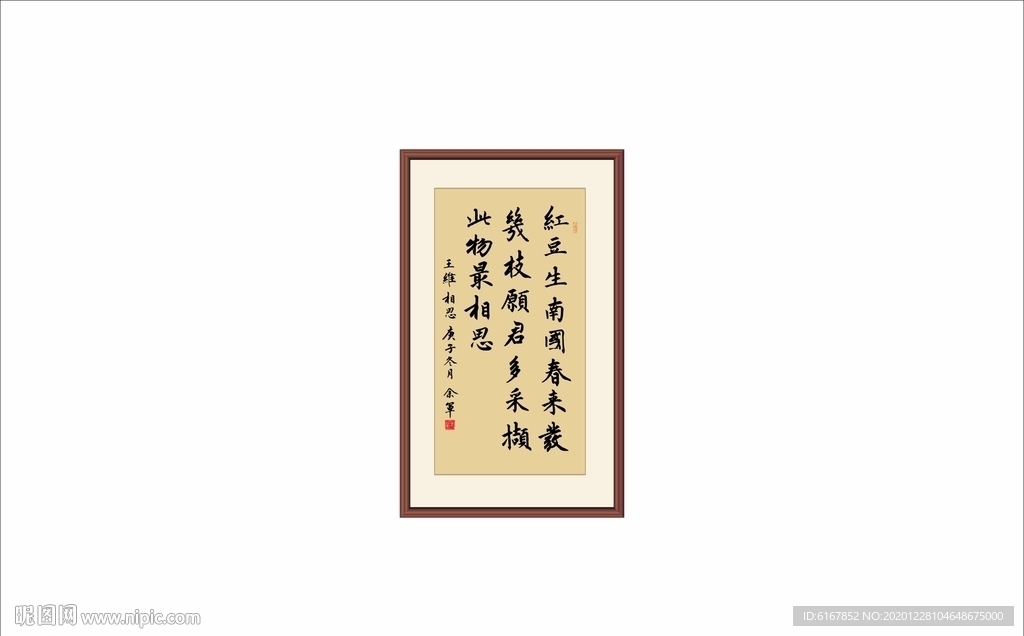 紅豆生南國春来發
幾枝願君多采擷
此物最相思
王維相思 庚子冬月 余軍
昵图网 www.nipic.com
ID:6167852 NO:20201228104648675000